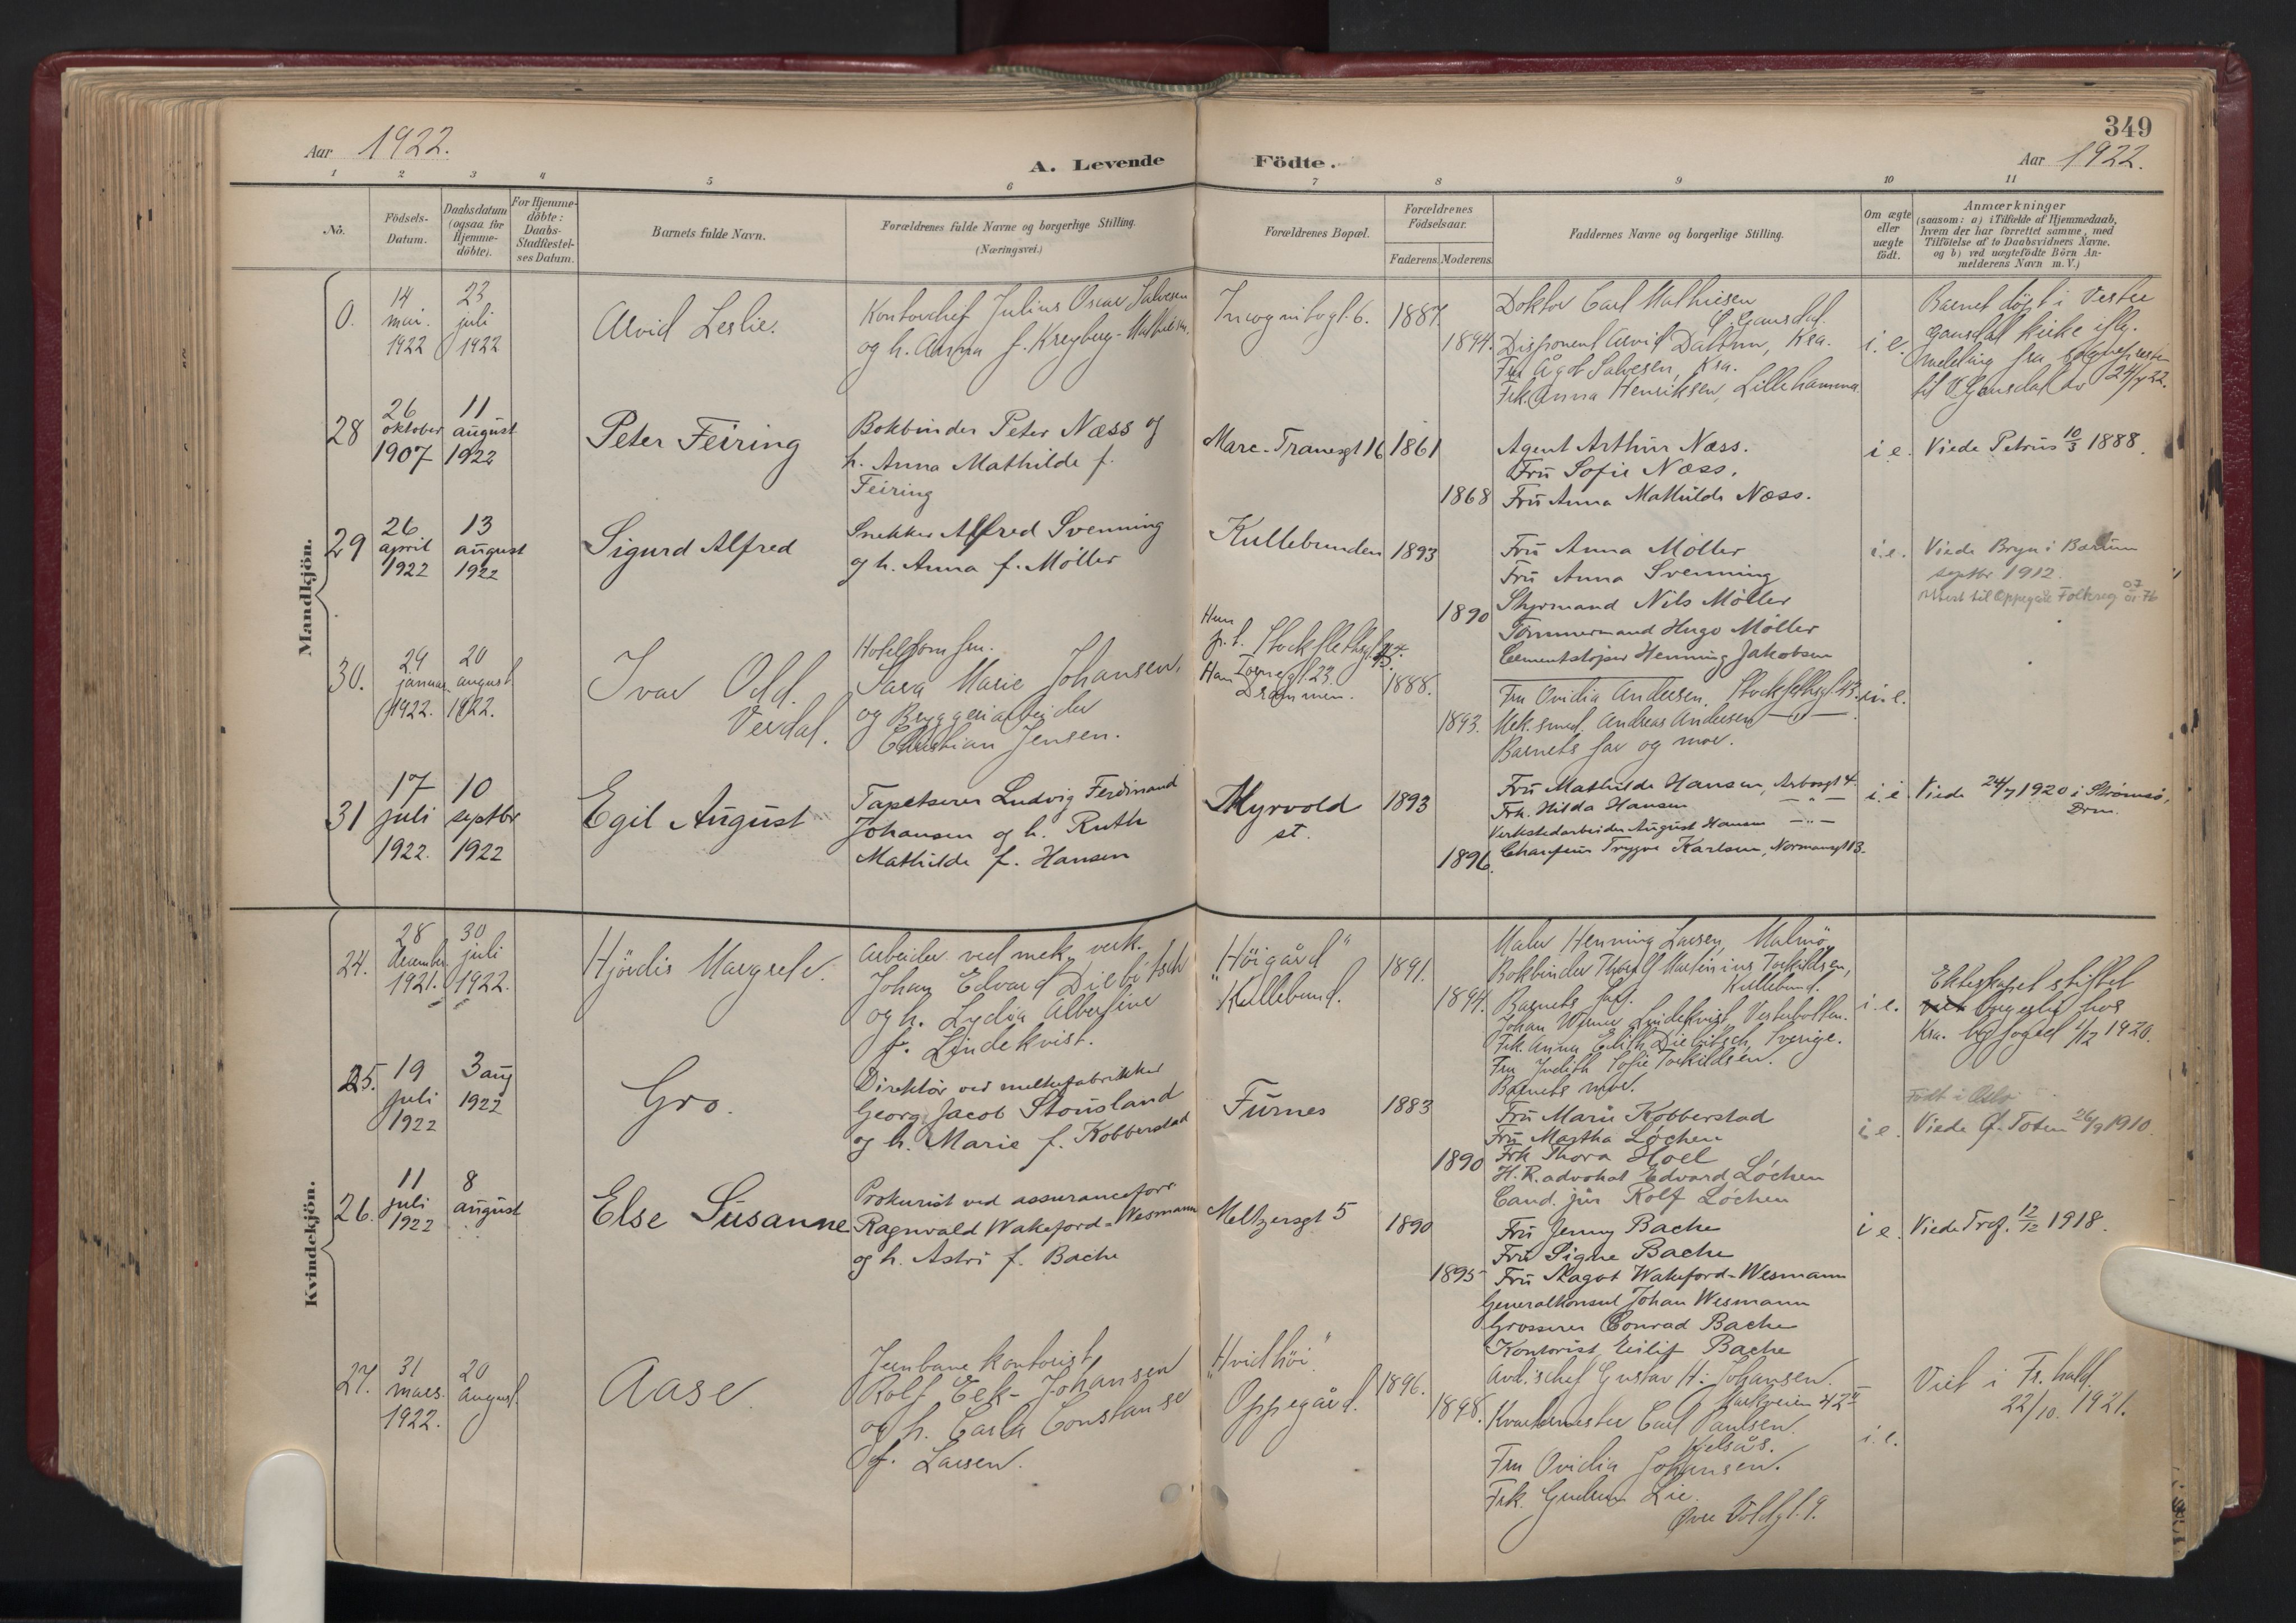 349
Aar 1922.
A. Levende Födte.
Aar 1922.
1 2 3 4 5 6 7 8 9 10 11
No.
Födsels-
Datum.
Daabsdatum
(ogsaa for
Hjemme-
döbte).
For Hjemme-
döbte:
Daabs-
Stadfæstel-
ses Datum.
Barnets fulde Navn.
Forældrenes fulde Navne og borgerlige Stilling.
(Næringsvei.)
Forældrenes Bopæl.
Forældrenes
Födselsaar.
Faderens. Moderens.
Faddernes Navne og borgerlige Stilling.
Om ægte
eller
uægte
födt.
Anmærkninger
(saasom: a) i Tilfælde af Hjemmedaab,
hvem der har forrettet samme, med
Tilföielse af to Daabsvidners Navne,
og b) ved uægtefödte Börn An-
melderens Navn m. V.)
Mandkjön.
0.
14
mai.
1922
23
juli
1922
Arvid Leslie.
Kontorchef Julius Oscar Salvesen
og h. Anna f. Kreyberg-Mathiesen.
Incognitogt. 6.
1887.
1894.
Doktor Carl Mathiesen
Ö. Gausdal.
Disponent Arvid Dahlum, Kra.
Fru Ågot Salvesen, Kra.
Frk. Anna Henriksen, Lillehammer
i. e.
Barnet döpt i Vestre
Gausdal kirke iflg.
melding fra sognepresten
til V. Gausdal av 24/7 22.
28
26
oktober
1907
11
august
1922
Peter Feiring
Bokbinder Peter Næss og
h. Anna Mathilde f.
Feiring
Marc. Tranesgt 16
1861
1868
Agent Arthur Næss.
Fru Sofie Næss.
Fru Anna Mathilde Næss.
i e.
Viede Petrus 10/3 1888.
29
26
april
1922
13
august
1922
Sigurd Alfred
Snekker Alfred Svenning
og h. Anna f. Möller
Kullebunden
1893
1890
Fru Anna Möller
Fru Anna Svenning
Styrmand Nils Möller
Tömmermand Hugo Möller
Cementstöper Henning Jakobsen
i. e.
Viede Bryn i Bærum
septbr 1912.
Attest til Oppegård Folkreg
30.
29
januar
1922.
20
august
1922.
Ivar Odd
Verdal.
Hoteljomfru.
Sara Marie Johansen,
og Bryggeriarbeider
Christian Jensen.
Hun
p. t. Stockflethsgt.
Ham Tornegt. 23.
Drammen.
1888.
1893.
Fru Ovidia Andersen, Stockflethsgt 43.
Mek. smed. Andreas Andersen — " —
Barnets far og mor.
u. e.
31
17
juli
1922.
10
septbr
1922
Egil August
Tapetserer Ludvig Ferdinand
Johansen og h. Ruth
Mathilde f. Hansen
Myrvold
st.
1893
1896.
Fru Mathilde Hansen, Arbosgt 4.
Frk. Hilda Hansen — " —
Verkstedarbeider August Hansen — " —
Chauffeur Trygve Karlsen, Normansgt 13.
i. e
Viede 24/7 1920 i Strömsö,
Drm.
Kvindekjön.
24.
28
december
1921.
30
juli
1922.
Hjördis Margrete.
Arbeider ved mek. verk.
Johan Edvard Diebitsch
og h. Lydia Albertine
f. Lindekvist.
"Höigård"
Kullebund.
1891.
1894.
Maler Henning Larsen, Malmö,
Bokbinder Thoralf Martinius Torkildsen,
Kullebund.
Barnets far.
Johan Werner Lindekvist, Vesterbotten.
Frk. Anna Edith Diebitsch, Sverige.
Fru Judith Sofie Torkildsen.
Barnets mor.
i. e.
Ekteskapet stiftet
borgerlig hos
Kra. byfoged 4/12 1920.
25.
19
juli
1922
3 aug
1922
Gro.
Direktör ved melkefabrikker
Georg Jacob Stousland
og h. Marie f. Kobberstad
Furnes
1883
1890
Fru Marie Kobberstad
Fru Martha Löchen
Frk Thora Hoel
H. R. advokat Edvard Löchen
Cand. jur Rolf Löchen
i e.
Födt i Oslo
Viede Ö. Toten 26/9 1910.
26.
11
juli
1922
8
august
Else Susanne
Prokurist ved assuranceforr
Ragnvald Wakeford-Wesmann
og h. Astri f. Bache
Meltzersgt 5
1890
1895
Fru Jenny Bache
Fru Signe Bache
Fru Magot Wakeford-Wesmann
Generalkonsul Johan Wesmann
Grosserer Conrad Bache
Kontorist Eilif Bache
i e.
Viede Tref. 12/12 1918.
27.
31
mars.
1922.
20
august.
Aase
Jernbanekontorist
Rolf Eek-Johansen
og h. Carla Constanse
f. Larsen.
"Hvidhöi"
Oppegård.
1896.
1898.
Avd.schef Gustav H. Johansen.
Markveien 42
Kvartermester Carl Paulsen.
Kjelsås.
Fru Ovidia Johansen.
Frk. Gudrun Lie.
Övre Voldgt. 9.
i. e.
Viet i Fr. hald
22/10. 1921.